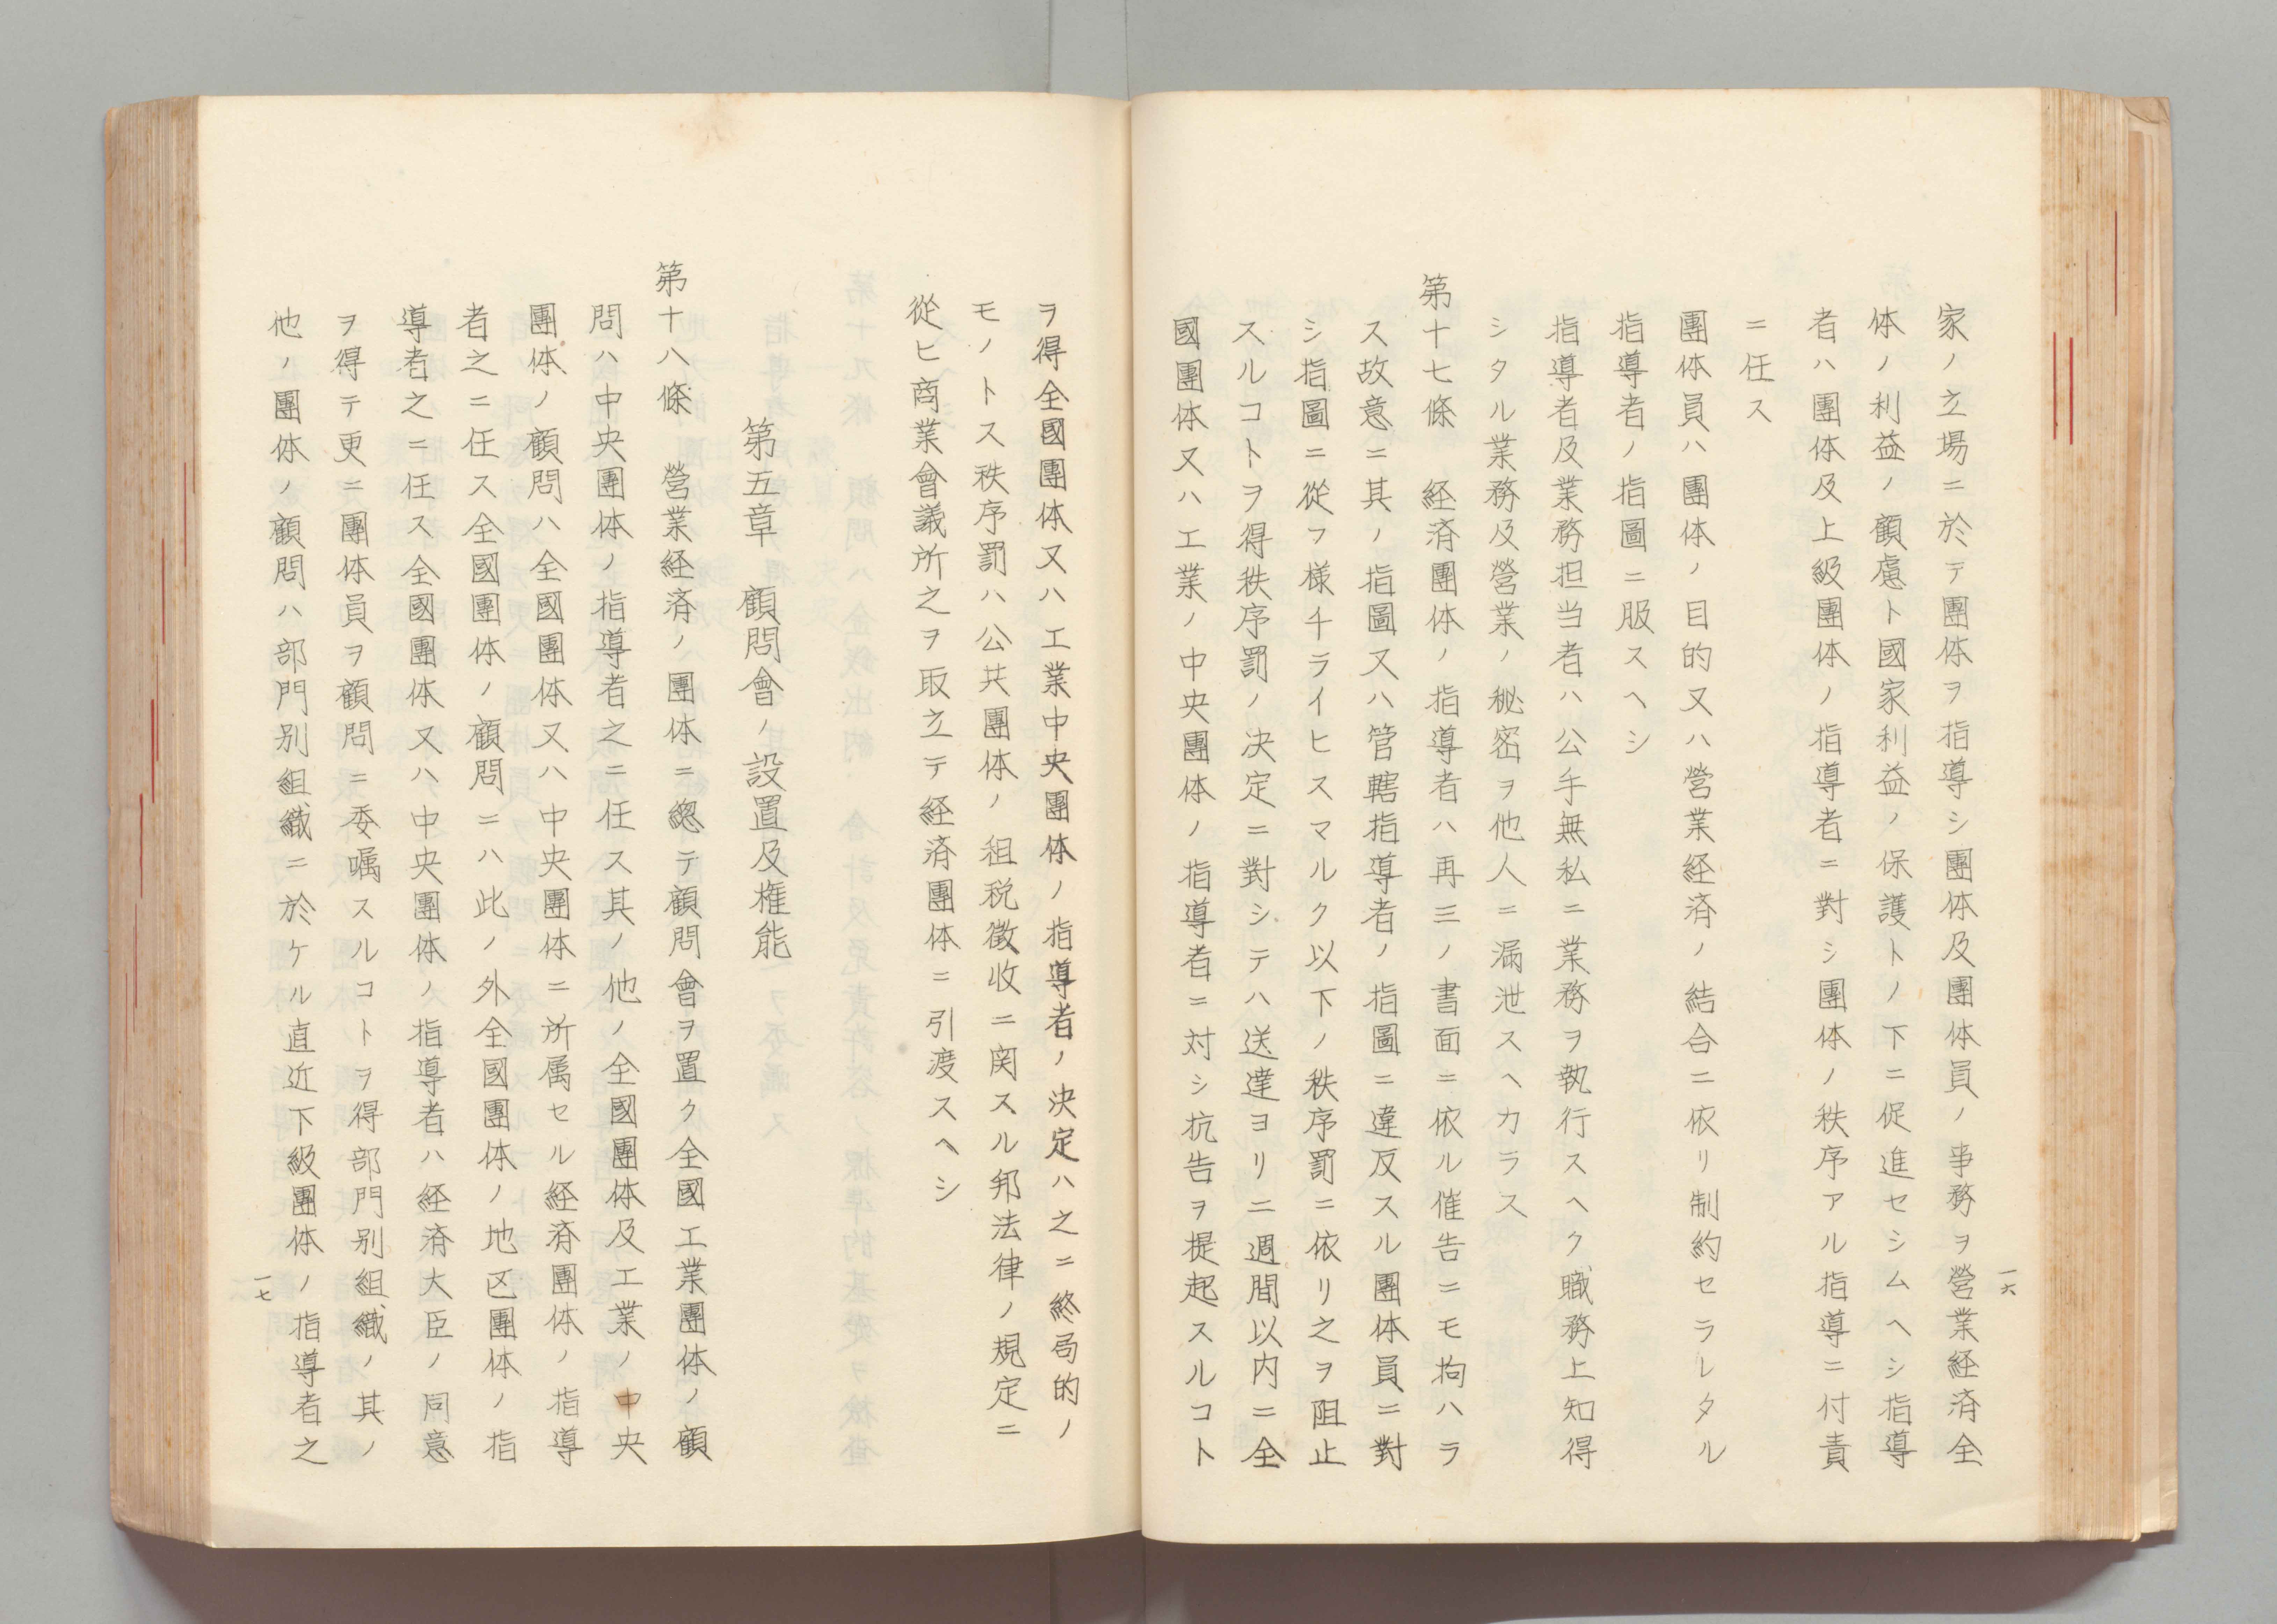 家ノ立場ニ於テ團体ヲ指導シ團体及團体員ノ事務ヲ營業経済全
体ノ利益ノ顧慮ト國家利益ノ保護トノ下ニ促進セシムヘシ指導
者ハ團体及上級團体ノ指導者ニ對シ團体ノ秩序アル指導ニ付責
ニ任ス
團体員ハ團体ノ目的又ハ營業経済ノ結合ニ依リ制約セラレタル
指導者ノ指圖ニ服スヘシ
指導者及業務担当者ハ公手無私ニ業務ヲ執行スヘク職務上知得
シタル業務及營業ノ秘密ヲ他人ニ漏泄スヘカラス
第十七條 経済團体ノ指導者ハ再三ノ書面ニ依ル催告ニモ拘ハラ
ス故意ニ其ノ指圖又ハ管轄指導者ノ指圖ニ違反スル團体員ニ對
シ指圖ニ從フ様チライヒスマルク以下ノ秩序罰ニ依リ之ヲ阻止
スルコトヲ得秩序罰ノ決定ニ對シテハ送達ヨリ二週間以内ニ全
國團体又ハ工業ノ中央團体ノ指導者ニ対シ抗告ヲ提起スルコト
一六
ヲ得全國團体又ハ工業中央團体ノ指導者ノ決定ハ之ニ終局的ノ
モノトス秩序罰ハ公共團体ノ租税徴收ニ関スル邦法律ノ規定ニ
從ヒ商業會議所之ヲ取立テ経済團体ニ引渡スヘシ
第五章 顧問會ノ設置及権能
第十八條 營業経済ノ團体ニ總テ顧問會ヲ置ク全國工業團体ノ顧
問ハ中央團体ノ指導者之ニ任ス其ノ他ノ全國團体及工業ノ中央
團体ノ顧問ハ全國團体又ハ中央團体ニ所属セル経済團体ノ指導
者之ニ任ス全國團体ノ顧問ニハ此ノ外全國團体ノ地区團体ノ指
導者之ニ任ス全國團体又ハ中央團体ノ指導者ハ経済大臣ノ同意
ヲ得テ更ニ團体員ヲ顧問ニ委嘱スルコトヲ得部門別組織ノ其ノ
他ノ團体ノ顧問ハ部門別組織ニ於ケル直近下級團体ノ指導者之
一七